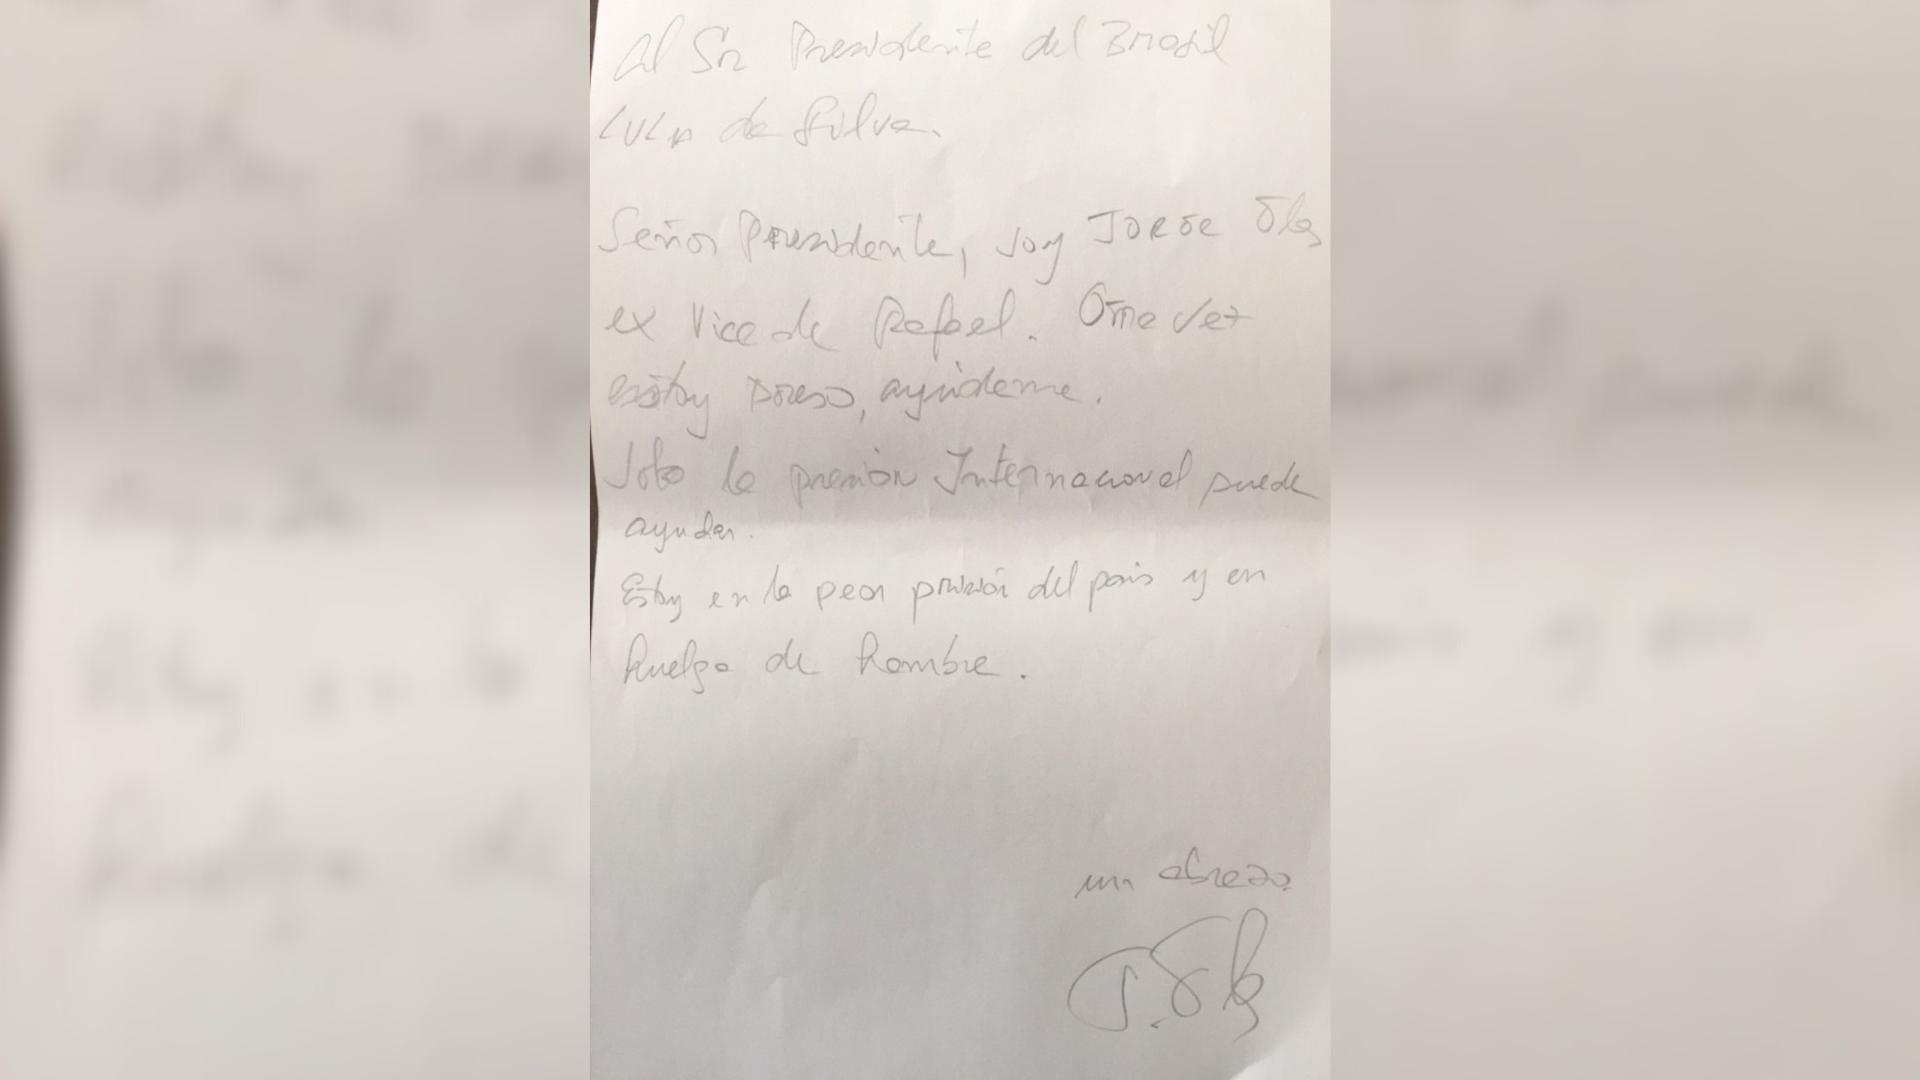 Al Sr Presidente del Brasil
LULA da Silva.
Señor Presidente, soy JORGE Glas
ex Vice de Rafael. Otra vez
estoy preso, ayúdeme.
Solo la presión Internacional puede
ayudar.
Estoy en la peor prisión del país y en
huelga de hambre.
un abrazo.
J. Glas